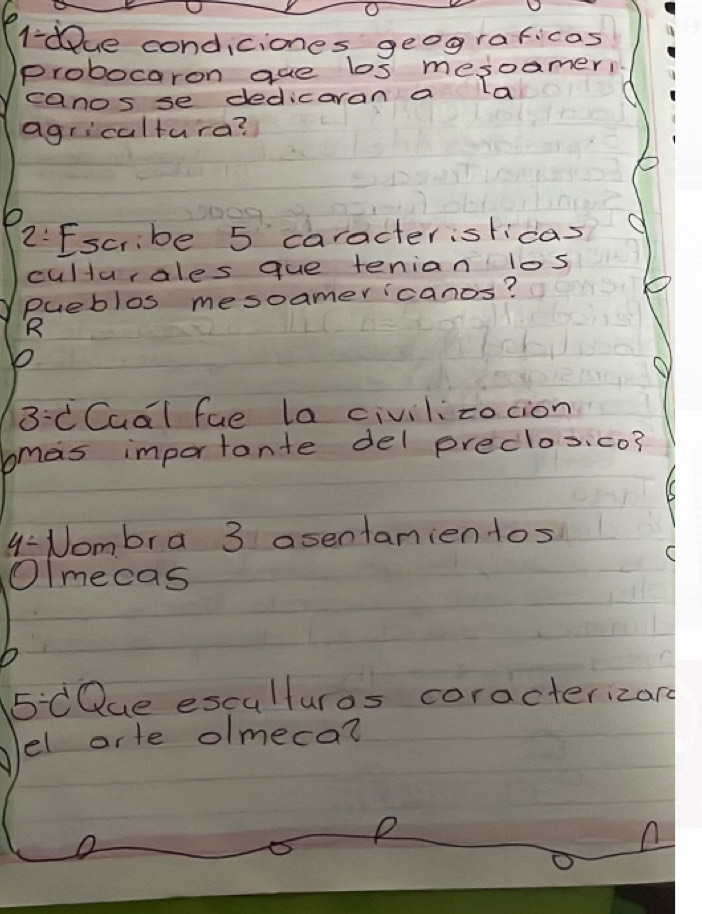 1-¿Que condiciones geograficas
probocaron que los mesoameri
canos se dedicaran a la
agricultura?
2-Escribe 5 caracteristicas
culturales que tenian los
pueblos mesoamericanos?
R
3-¿Cuál fue la civilizacion
más importante del preclasico?
4-Nombra 3 asentamientos
Olmecas
5-¿Que esculturas caracterizaro
el arte olmeca?